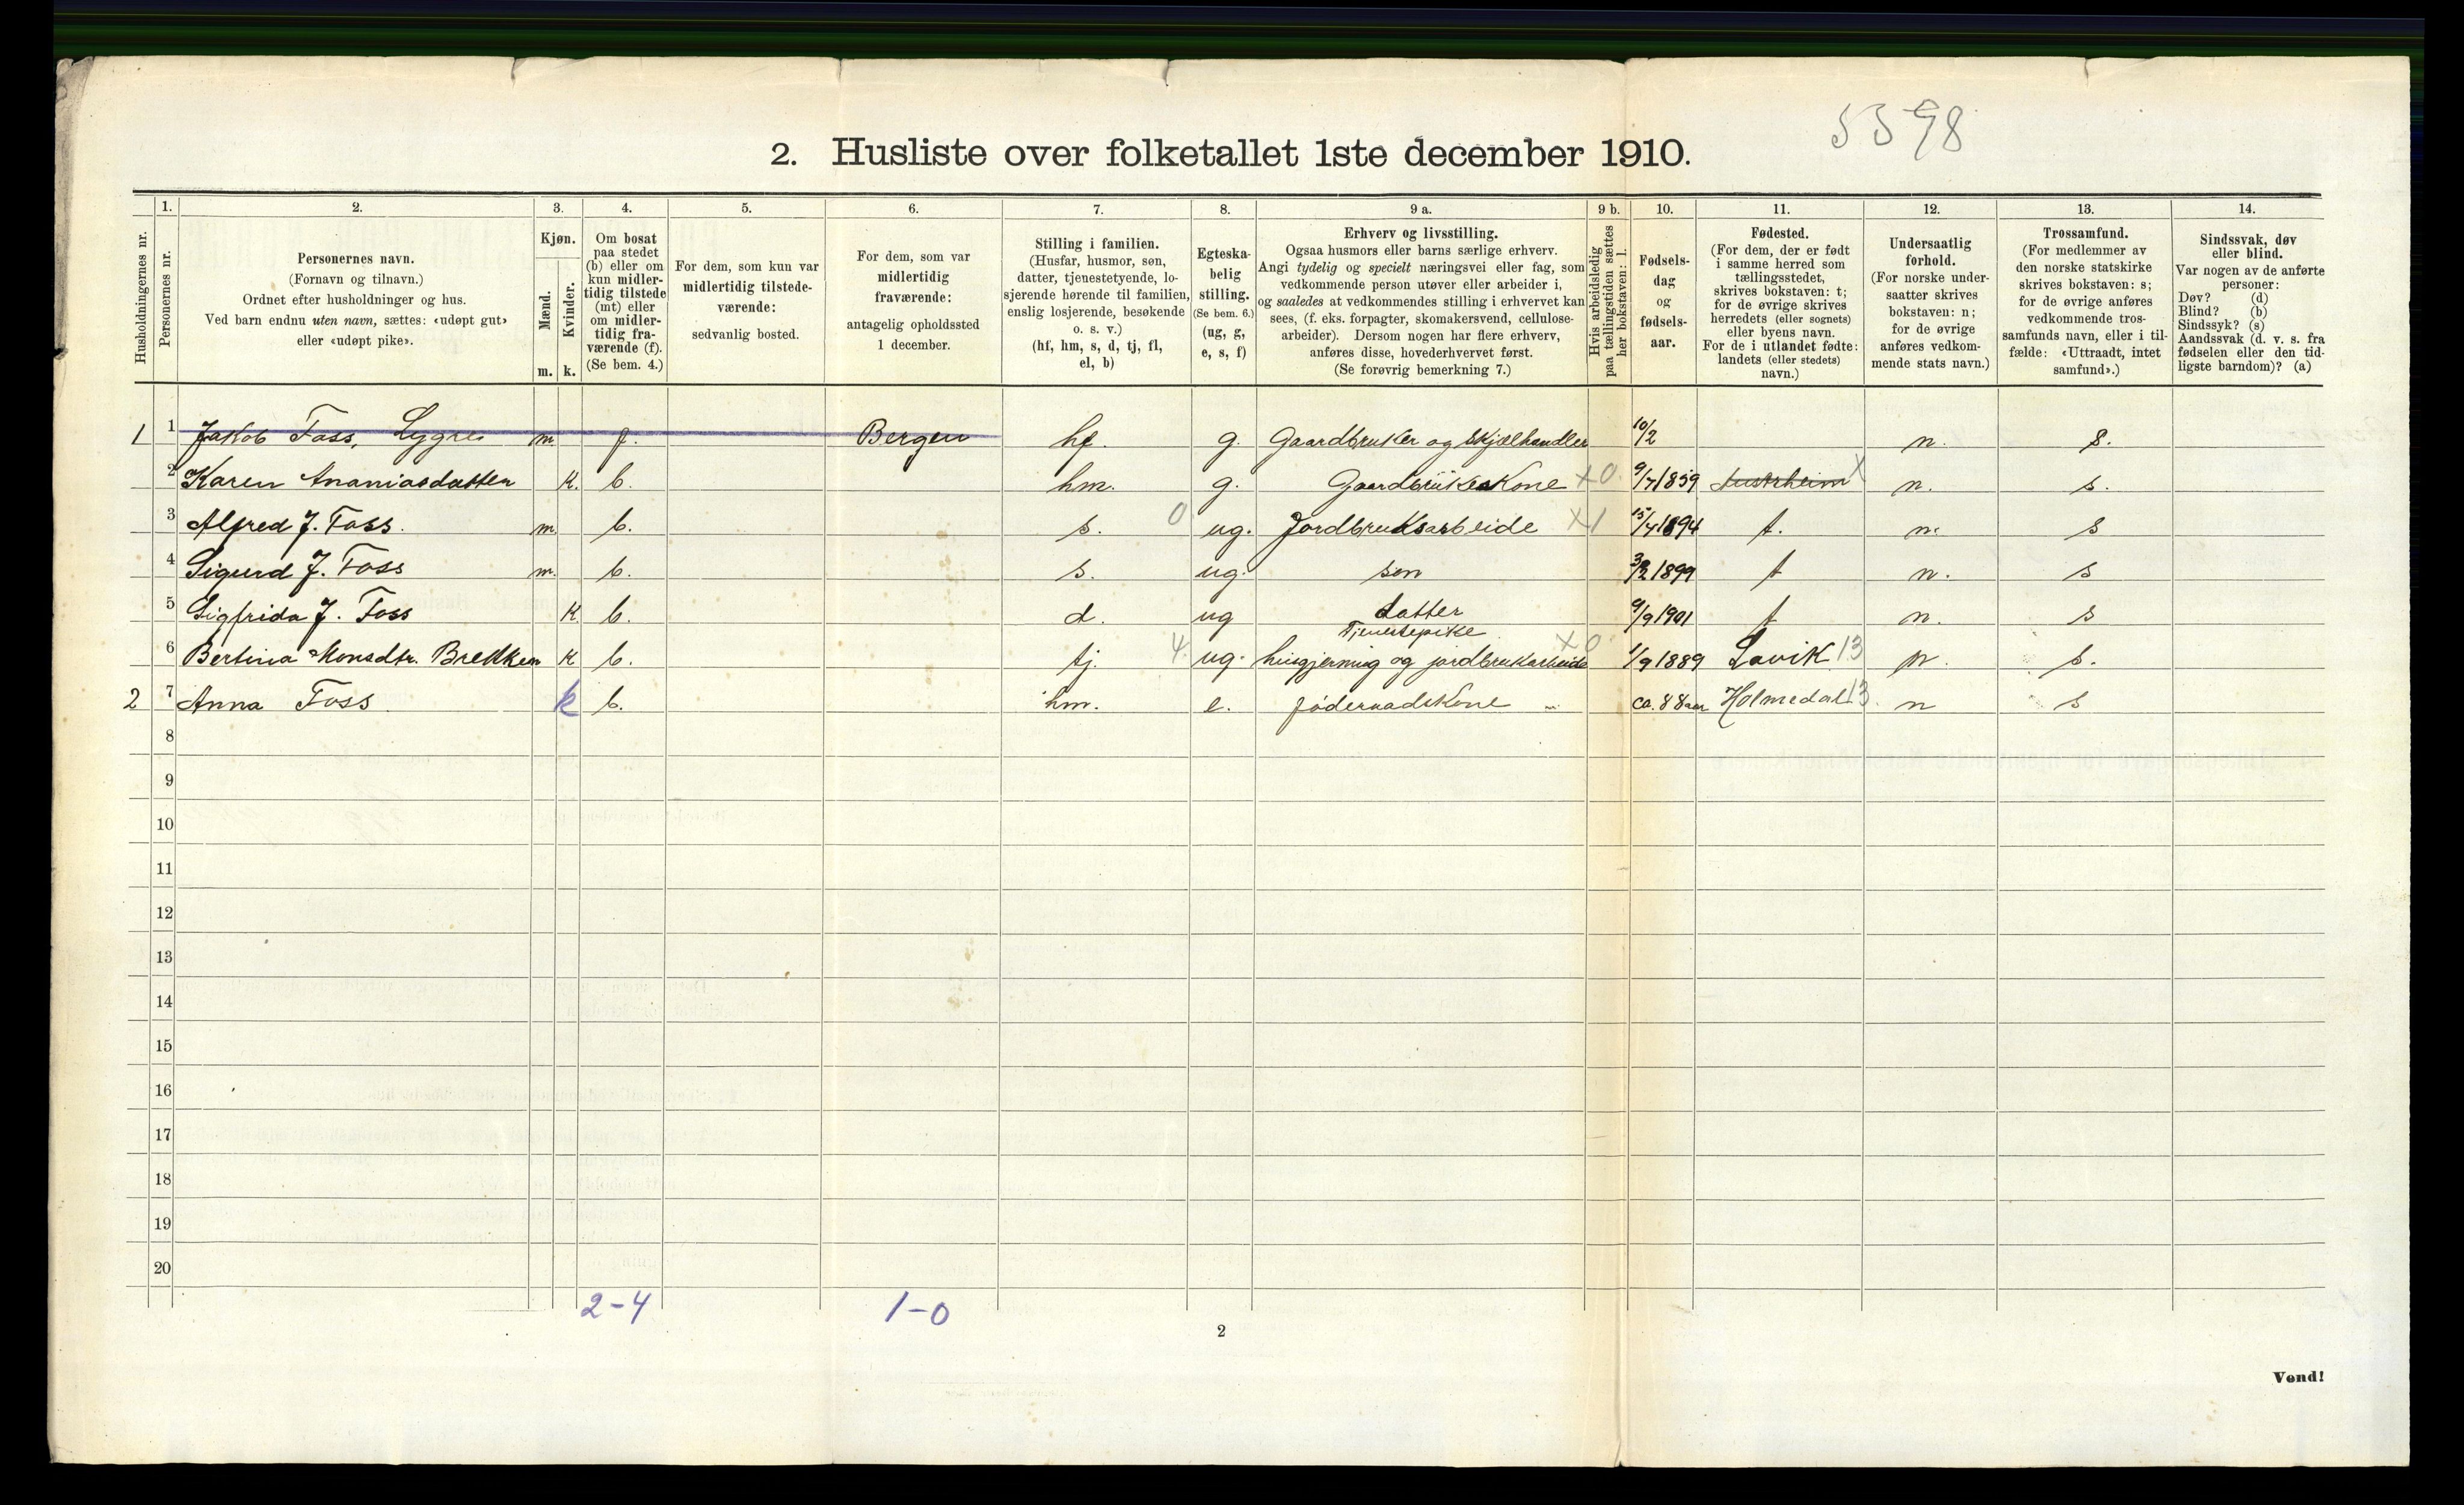 5598
2. Husliste over folketallet 1ste december 1910.
Husholdningernes nr.
1.
Personernes nr.
2.
Personernes navn.
(Fornavn og tilnavn.)
Ordnet efter husholdninger og hus.
Ved barn endnu uten navn, sættes: «udøpt gut»
eller «udøpt pike».
3.
Kjøn.
Mænd.
Kvinder.
m. k.
4.
Om bosat
paa stedet
(b) eller om
kun midler-
tidig tilstede
(mt) eller
om midler-
tidig fra-
værende (f).
(Se bem. 4.)
5.
For dem, som kun var
midlertidig tilstede-
værende:
sedvanlig bosted.
6.
For dem, som var
midlertidig
fraværende:
antagelig opholdssted
1 december.
7.
Stilling i familien.
(Husfar, husmor, søn,
datter, tjenestetyende, lo-
sjerende hørende til familien,
enslig losjerende, besøkende
o. s. v.)
(hf, hm, s, d, tj, fl,
el, b)
8.
Egteska-
belig
stilling.
(Se bem. 6.)
(ug, g,
e, s, f)
9 a.
Erhverv og livsstilling.
Ogsaa husmors eller barns særlige erhverv.
Angi tydelig og specielt næringsvei eller fag, som
vedkommende person utøver eller arbeider i,
og saaledes at vedkommendes stilling i erhvervet kan
sees, (f. eks. forpagter, skomakersvend, cellulose-
arbeider). Dersom nogen har flere erhverv,
anføres disse, hovederhvervet først.
(Se forøvrig bemerkning 7.)
9 b.
Hvis arbeidsledig
paa tællingstiden sættes
her bokstaven: l.
10.
Fødsels-
dag
og
fødsels-
aar.
11.
Fødested.
(For dem, der er født
i samme herred som
tællingsstedet,
skrives bokstaven: t;
for de øvrige skrives
herredets (eller sognets)
eller byens navn.
For de i utlandet fødte:
landets (eller stedets)
navn.)
12.
Undersaatlig
forhold.
(For norske under-
saatter skrives
bokstaven: n;
for de øvrige
anføres vedkom-
mende stats navn.)
13.
Trossamfund.
(For medlemmer av
den norske statskirke
skrives bokstaven: s;
for de øvrige anføres
vedkommende tros-
samfunds navn, eller i til-
fælde: «Uttraadt, intet
samfund».)
14.
Sindssvak, døv
eller blind.
Var nogen av de anførte
personer:
Døv? (d)
Blind? (b)
Sindssyk? (s)
Aandssvak (d. v. s. fra
fødselen eller den tid-
ligste barndom)? (a)
1 1 Jakob Foss, Lygre m. f. Bergen hf. g. Gaardbruker og Skjælhandler 10/2 n. s.
2 Karen Ananiasdatter k. b. hm. g. Gaardbrukeskone x0. 9/7 1859 Austrheim x n. s.
3 Alfred J. Foss. m b. s. 0 ug. Jordbruksarbeide x1 15/4 1894 t. n. s
4 Sigurd J. Foss m. b. s. ug. søn 3/2 1899 t n. s
5 Sigfrida J. Foss k b. d. ug datter 9/9 1901 t n. s
6 Bertina Monsdtr. Brekken k b. tj. 4. ug. Tjenestepike x0
husgjerning og jordbrukarbeide 1/9 1889 Lavik 13 n. s.
2 7 Anna Foss k b. hm. e. føderaadskone ca. 88 aar Holmedal 13. n s
8
9
10
11
12
13
14
15
16
17
18
19
20
2-4 1-0
2
Vend!